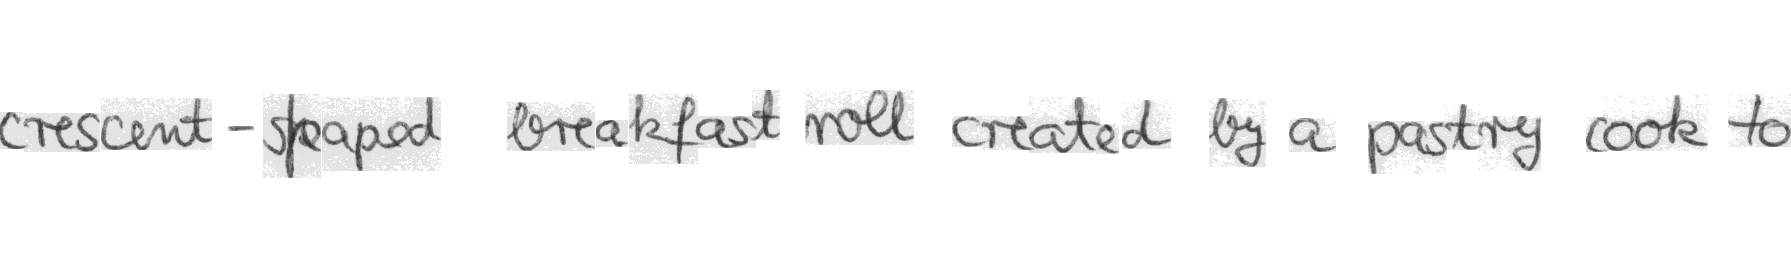 crescent - shaped breakfast roll created by a pastry cook to